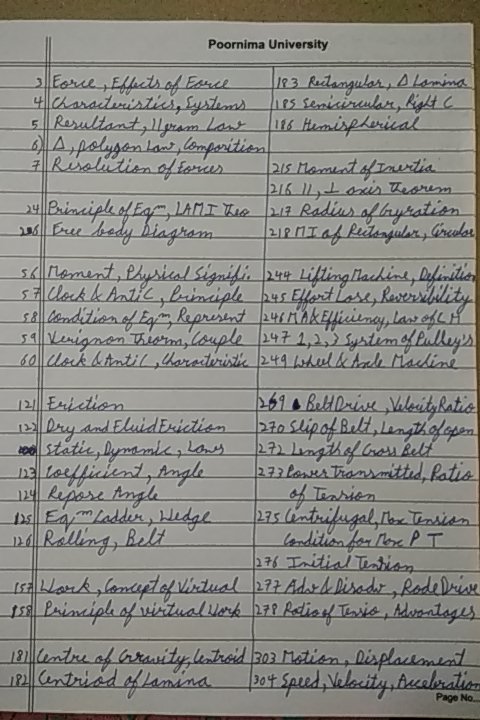 Poornima University
3 Force, Effects of Force
4 Characteristics, Systems
5 Resultant, 11gram Law
6) Δ, polygon Law, Composition
7 Resolution of Forces
24 Principle of Eqᵐ, LAMI Theo
26 Free body Diagram
56 Moment, Physical Signifi.
57 Clock & Anti C, Principle
58 Condition of Eqᵐ, Represent
59 Verignon Theorm, Couple
60 Clock & Anti C, Characteristic
121 Friction
122 Dry and Fluid Friction
Static, Dynamic, Laws
123 Coefficient, Angle
124 Repose Angle
125 Eqᵐ Ladder, Wedge
126 Rolling, Belt
157 Work, Concept of Virtual
158 Principle of virtual Work
181 Centre of Gravity, Centroid
182 Centriod of Lamina
183 Rectangular, Δ Lamina
185 Semicircular, Right C
186 Hemispherical
215 Moment of Inertia
216 11, ⊥ axis Theorem
217 Radius of Gyration
218 MI of Rectangular, Circular
244 Lifting Machine, Definition
245 Effort Lose, Reversibility
246 MA & Efficiency, Law of LM
247 1, 2, 3 System of Pulley's
249 Wheel & Axle Machine
269 Belt Drive, Velocity Ratio
270 Slip of Belt, Length of open
272 Length of Cross Belt
273 Power Transmitted, Ratio
of Tension
275 Centrifugal, Max Tension
Condition for Max P T
276 Initial Tension
277 Adv & Disadv, Rode Drive
278 Ratio of Tensio, Advantages
303 Motion, Displacement
304 Speed, Velocity, Acceleration
Page No...